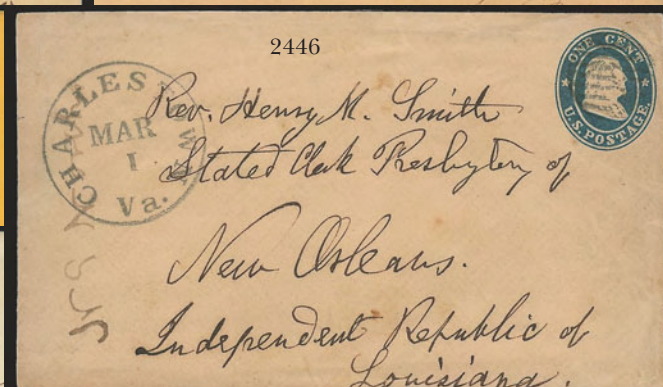 2446
ONE CENT
U.S. POSTAGE.
CHARLESTOWN
MAR
1
Va.
Rev. Henry M. Smith
Stated Clerk Presbytery of
New Orleans.
Independent Republic of
Louisiana.